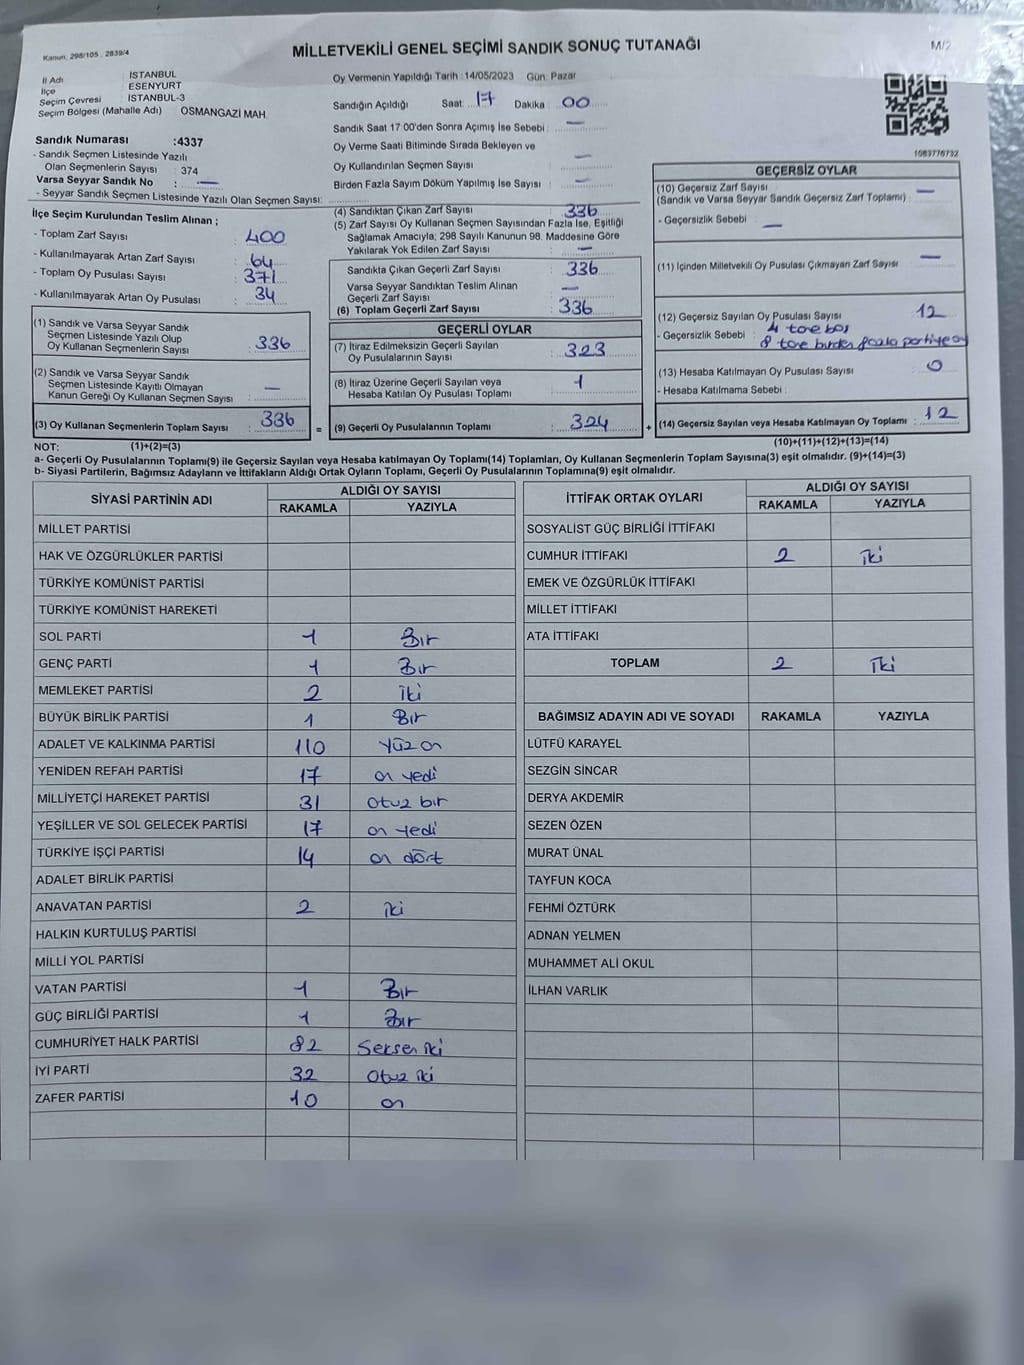 Kanun: 298/105 , 2839/4
MİLLETVEKİLİ GENEL SEÇİMİ SANDIK SONUÇ TUTANAĞI
M/2
İl Adı İSTANBUL
İlçe ESENYURT
Seçim Çevresi İSTANBUL-3
Seçim Bölgesi (Mahalle Adı) OSMANGAZİ MAH.
Sandık Numarası :4337
- Sandık Seçmen Listesinde Yazılı
Olan Seçmenlerin Sayısı : 374
Varsa Seyyar Sandık No : —
- Seyyar Sandık Seçmen Listesinde Yazılı Olan Seçmen Sayısı:
Oy Vermenin Yapıldığı Tarih :14/05/2023 Gün: Pazar
Sandığın Açıldığı Saat 17 Dakika 00
Sandık Saat 17:00'den Sonra Açımış İse Sebebi : —
Oy Verme Saati Bitiminde Sırada Bekleyen ve
Oy Kullandırılan Seçmen Sayısı : —
Birden Fazla Sayım Döküm Yapılmış İse Sayısı : —
1083776732
İlçe Seçim Kurulundan Teslim Alınan ;
- Toplam Zarf Sayısı : 400
- Kullanılmayarak Artan Zarf Sayısı : 64
- Toplam Oy Pusulası Sayısı : 371
- Kullanılmayarak Artan Oy Pusulası : 34
(1) Sandık ve Varsa Seyyar Sandık
Seçmen Listesinde Yazılı Olup
Oy Kullanan Seçmenlerin Sayısı : 336
(2) Sandık ve Varsa Seyyar Sandık
Seçmen Listesinde Kayıtlı Olmayan
Kanun Gereği Oy Kullanan Seçmen Sayısı : —
(3) Oy Kullanan Seçmenlerin Toplam Sayısı : 336
(4) Sandıktan Çıkan Zarf Sayısı : 336
(5) Zarf Sayısı Oy Kullanan Seçmen Sayısından Fazla İse, Eşitliği
Sağlamak Amacıyla; 298 Sayılı Kanunun 98. Maddesine Göre
Yakılarak Yok Edilen Zarf Sayısı : —
Sandıkta Çıkan Geçerli Zarf Sayısı : 336
Varsa Seyyar Sandıktan Teslim Alınan
Geçerli Zarf Sayısı : —
(6) Toplam Geçerli Zarf Sayısı : 336
GEÇERLİ OYLAR
(7) İtiraz Edilmeksizin Geçerli Sayılan
Oy Pusulalarının Sayısı : 323
(8) İtiraz Üzerine Geçerli Sayılan veya
Hesaba Katılan Oy Pusulası Toplamı : 1
= (9) Geçerli Oy Pusulalarının Toplamı : 324
GEÇERSİZ OYLAR
(10) Geçersiz Zarf Sayısı : —
(Sandık ve Varsa Seyyar Sandık Geçersiz Zarf Toplamı)
- Geçersizlik Sebebi : —
(11) İçinden Milletvekili Oy Pusulası Çıkmayan Zarf Sayısı : —
(12) Geçersiz Sayılan Oy Pusulası Sayısı : 12
- Geçersizlik Sebebi : 4 tane boş
8 tane birden fazla partiye oy
(13) Hesaba Katılmayan Oy Pusulası Sayısı : 0
- Hesaba Katılmama Sebebi :
+ (14) Geçersiz Sayılan veya Hesaba Katılmayan Oy Toplamı : 12
NOT: (1)+(2)=(3) (10)+(11)+(12)+(13)=(14)
a- Geçerli Oy Pusulalarının Toplamı(9) ile Geçersiz Sayılan veya Hesaba katılmayan Oy Toplamı(14) Toplamları, Oy Kullanan Seçmenlerin Toplam Sayısına(3) eşit olmalıdır. (9)+(14)=(3)
b- Siyasi Partilerin, Bağımsız Adayların ve İttifakların Aldığı Ortak Oyların Toplamı, Geçerli Oy Pusulalarının Toplamına(9) eşit olmalıdır.
SİYASİ PARTİNİN ADI ALDIĞI OY SAYISI
RAKAMLA YAZIYLA
MİLLET PARTİSİ
HAK VE ÖZGÜRLÜKLER PARTİSİ
TÜRKİYE KOMÜNİST PARTİSİ
TÜRKİYE KOMÜNİST HAREKETİ
SOL PARTİ 1 Bir
GENÇ PARTİ 1 Bir
MEMLEKET PARTİSİ 2 iki
BÜYÜK BİRLİK PARTİSİ 1 Bir
ADALET VE KALKINMA PARTİSİ 110 yüz on
YENİDEN REFAH PARTİSİ 17 on yedi
MİLLİYETÇİ HAREKET PARTİSİ 31 otuz bir
YEŞİLLER VE SOL GELECEK PARTİSİ 17 on yedi
TÜRKİYE İŞÇİ PARTİSİ 14 on dört
ADALET BİRLİK PARTİSİ
ANAVATAN PARTİSİ 2 iki
HALKIN KURTULUŞ PARTİSİ
MİLLİ YOL PARTİSİ
VATAN PARTİSİ 1 Bir
GÜÇ BİRLİĞİ PARTİSİ 1 Bir
CUMHURİYET HALK PARTİSİ 82 Seksen iki
İYİ PARTİ 32 Otuz iki
ZAFER PARTİSİ 10 on
İTTİFAK ORTAK OYLARI ALDIĞI OY SAYISI
RAKAMLA YAZIYLA
SOSYALİST GÜÇ BİRLİĞİ İTTİFAKI
CUMHUR İTTİFAKI 2 iki
EMEK VE ÖZGÜRLÜK İTTİFAKI
MİLLET İTTİFAKI
ATA İTTİFAKI
TOPLAM 2 iki
BAĞIMSIZ ADAYIN ADI VE SOYADI RAKAMLA YAZIYLA
LÜTFÜ KARAYEL
SEZGİN SİNCAR
DERYA AKDEMİR
SEZEN ÖZEN
MURAT ÜNAL
TAYFUN KOCA
FEHMİ ÖZTÜRK
ADNAN YELMEN
MUHAMMET ALİ OKUL
İLHAN VARLIK